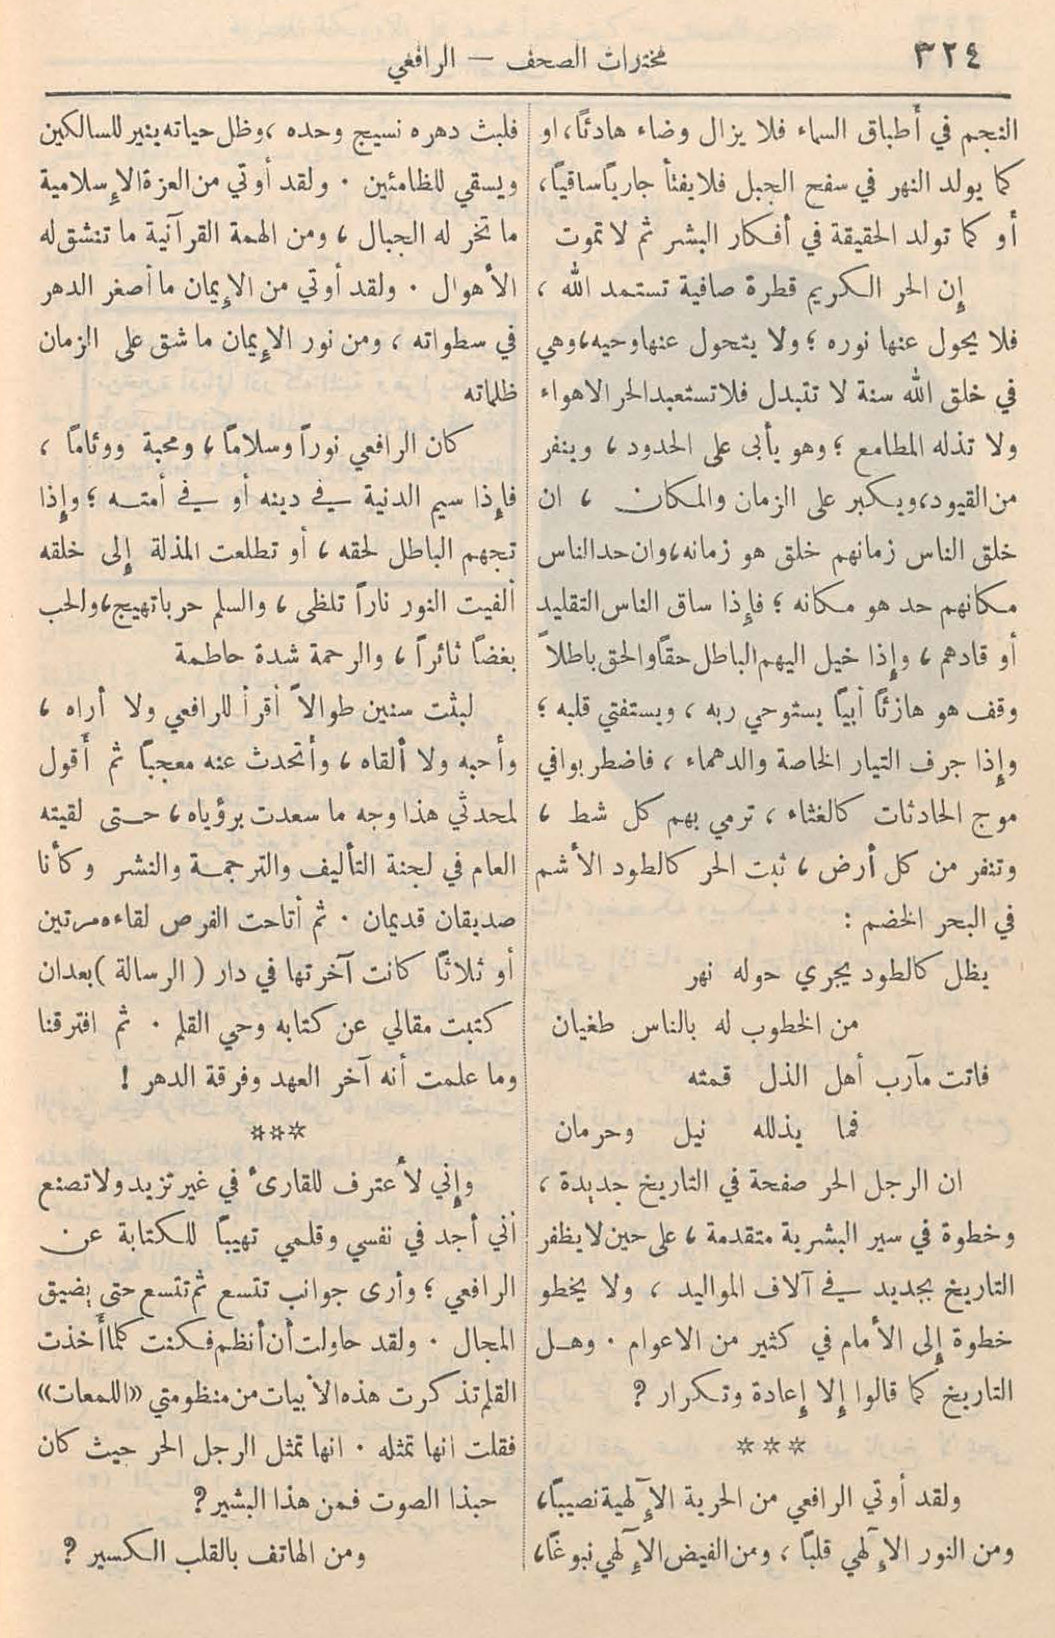 ٣٢٤
مختارات الصحف — الرافعي
النجم في أطباق السماء فلا يزال وضاء هادئاً، او
كما يولد النهر في سفح الجبل فلا يفتأ جارياً ساقياً،
أو كما تولد الحقيقة في أفكار البشر ثم لا تموت
إن الحر الكريم قطرة صافية تستمد الله ،
فلا يحول عنها نوره ؛ ولا يتحول عنها وحيه، وهي
في خلق الله سنة لا تتبدل فلا تستعبد الحر الاهواء
ولا تذله المطامع ؛ وهو يأبى على الحدود ، وينفر
من القيود، ويكبر على الزمان والمكان ، ان
خلق الناس زمانهم خلق هو زمانه، وان حد الناس
مكانهم حد هو مكانه ؛ فإذا ساق الناس التقليد
أو قادهم ، وإذا خيل اليهم الباطل حقاً والحق باطلاً
وقف هو هازئاً أبياً يستوحي ربه ، ويستفتي قلبه ؛
وإذا جرف التيار الخاصة والدهماء ، فاضطربوا في
موج الحادثات كالغثاء ، ترمي بهم كل شط ،
وتنفر من كل أرض ، ثبت الحر كالطود الأشم
في البحر الخضم :
يظل كالطود يجري حوله نهر
من الخطوب له بالناس طغيان
فاتت مآرب أهل الذل قمته
فما يذلله نيل وحرمان
ان الرجل الحر صفحة في التاريخ جديدة ،
وخطوة في سير البشرية متقدمة ، على حين لا يظفر
التاريخ بجديد في آلاف المواليد ، ولا يخطو
خطوة إلى الأمام في كثير من الاعوام . وهل
التاريخ كما قالوا إلا إعادة وتكرار ؟
***
ولقد أوتي الرافعي من الحرية الإلهية نصيباً،
ومن النور الإلهي قلباً ، ومن الفيض الإلهي نبوغاً،
فلبث دهره نسيج وحده ، وظل حياته ينير للسالكين
ويسقي للظامئين . ولقد أوتي من العزة الإسلامية
ما تخر له الجبال ، ومن الهمة القرآنية ما تنشق له
الأهوال . ولقد أوتي من الإيمان ما أصغر الدهر
في سطواته ، ومن نور الإيمان ما شق على الزمان
ظلماته
كان الرافعي نوراً وسلاماً ، ومحبة ووئاماً ،
فإذا سيم الدنية في دينه أو في أمته ؛ وإذا
تجهم الباطل لحقه ، أو تطلعت المذلة إلى خلقه
ألفيت النور ناراً تلظى ، والسلم حرباً تهيج، والحب
بغضاً ثائراً ، والرحمة شدة حاطمة
لبثت سنين طوالاً أقرأ للرافعي ولا أراه ،
وأحبه ولا ألقاه ، وأتحدث عنه معجباً ثم أقول
لمحدثي هذا وجه ما سعدت برؤياه ، حتى لقيته
العام في لجنة التأليف والترجمة والنشر وكأنا
صديقان قديمان . ثم أتاحت الفرص لقاءه مرتين
أو ثلاثاً كانت آخرتها في دار ( الرسالة ) بعد ان
كتبت مقالي عن كتابه وحي القلم . ثم افترقنا
وما علمت أنه آخر العهد وفرقة الدهر !
***
وإني لأعترف للقارىء في غير تزيد ولا تصنع
أنني أجد في نفسي وقلمي تهيباً للكتابة عن
الرافعي ؛ وأرى جوانب تتسع ثم تتسع حتى يضيق
المجال . ولقد حاولت أن أنظم فكنت كلما أخذت
القلم تذكرت هذه الأبيات من منظومتي «اللمعات»
فقلت انها تمثله . انها تمثل الرجل الحر حيث كان
حبذا الصوت فمن هذا البشير ؟
ومن الهاتف بالقلب الكسير ؟